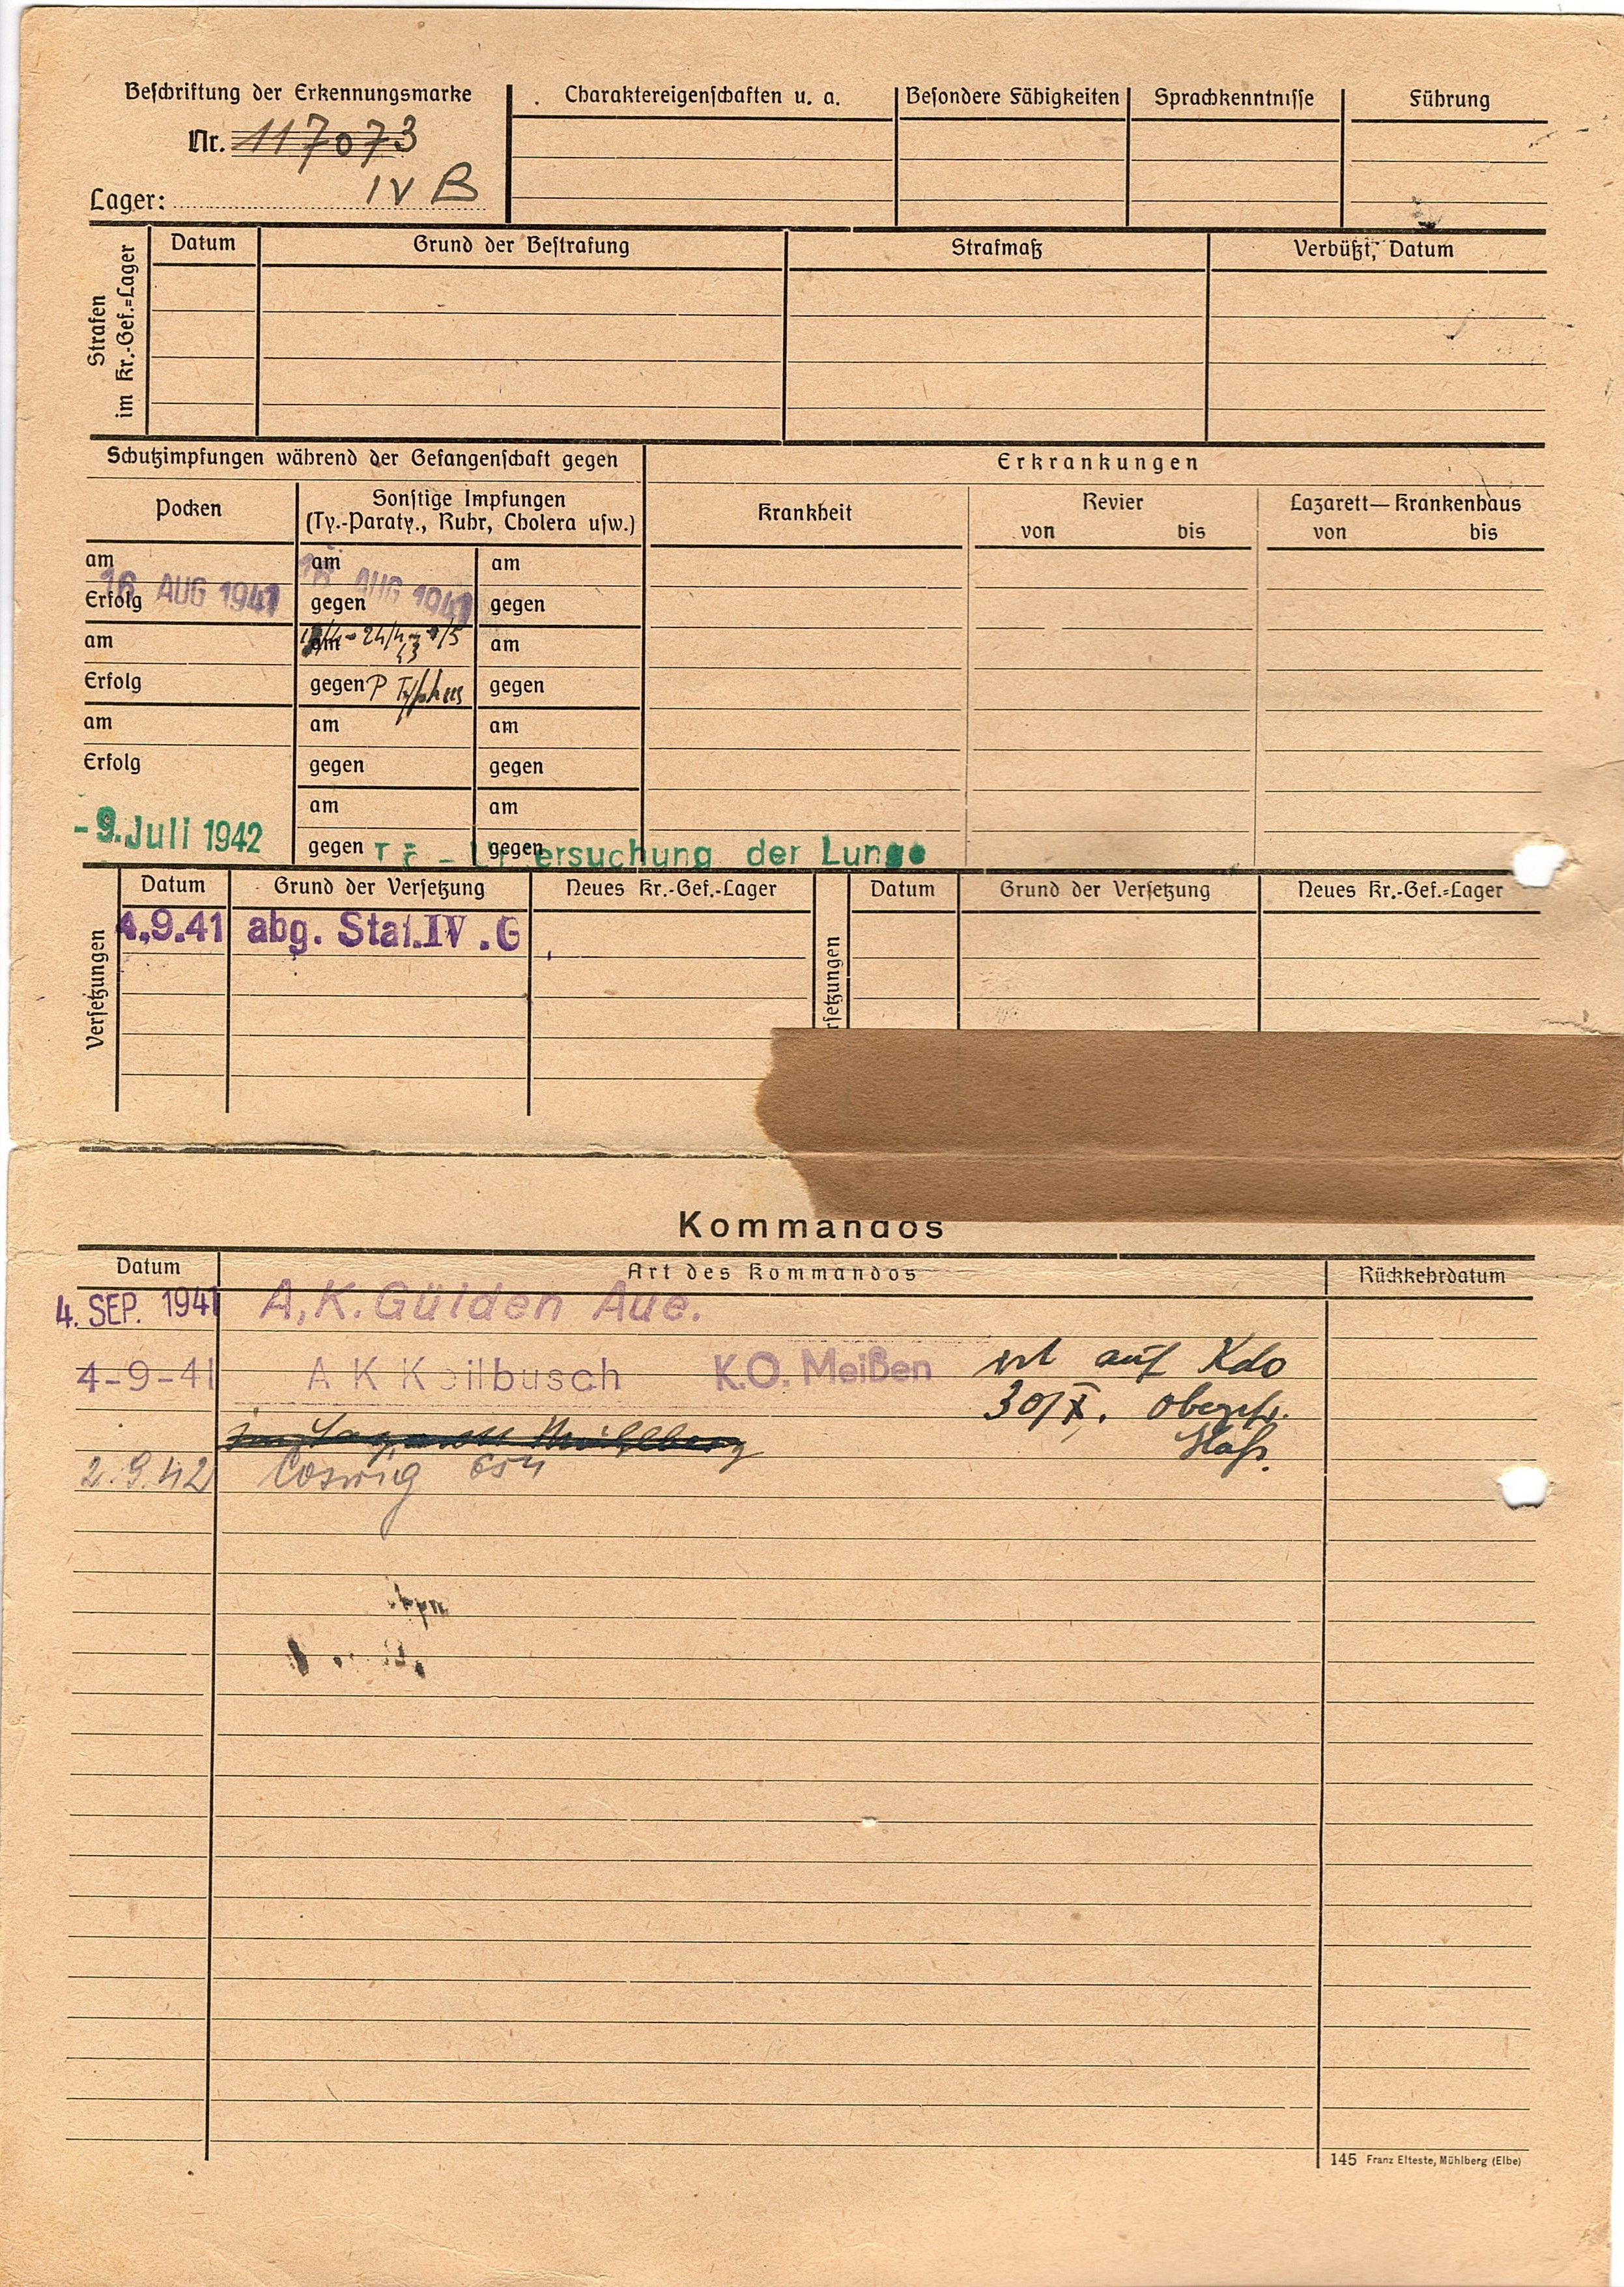 Beschriftung der Erkennungsmarke
Nr. 117073
Lager: IV B
Charaktereigenschaften u. a.
Besondere Fähigkeiten
Sprachkenntnisse
Führung
Strafen
im Kr.-Gef.=Lager
Datum
Grund der Bestrafung
Strafmaß
Verbüßt, Datum
Schutzimpfungen während der Gefangenschaft gegen
Erkrankungen
Pocken
Sonstige Impfungen
(Ty.-Paraty., Ruhr, Cholera usw.)
Krankheit
Revier
von bis
Lazarett—Krankenhaus
von bis
am am am
16 AUG 1941 AUG 1941
Erfolg gegen gegen
am am 24/4 am
43
Erfolg gegen P Typhus gegen
am am am
Erfolg gegen gegen
am am
-9. Juli 1942
gegen gegen
ersuchung der Lunge
Versetzungen
Datum Grund der Versetzung Neues Kr.-Gef.-Lager
4.9.41 abg. Stal. IV . G
rsetzungen
Datum Grund der Versetzung Neues Kr.-Gef.=Lager
Kommandos
Datum Art des Kommandos Rückkehrdatum
4. SEP. 1941 A.K. Gülden Aue.
4-9-41 A K Keilbusch K.O. Meißen ist auf Kdo
30/X. Obergefr.
Mühlberg
2.9.42 Coswig 654
145 Franz Elteste, Mühlberg (Elbe)